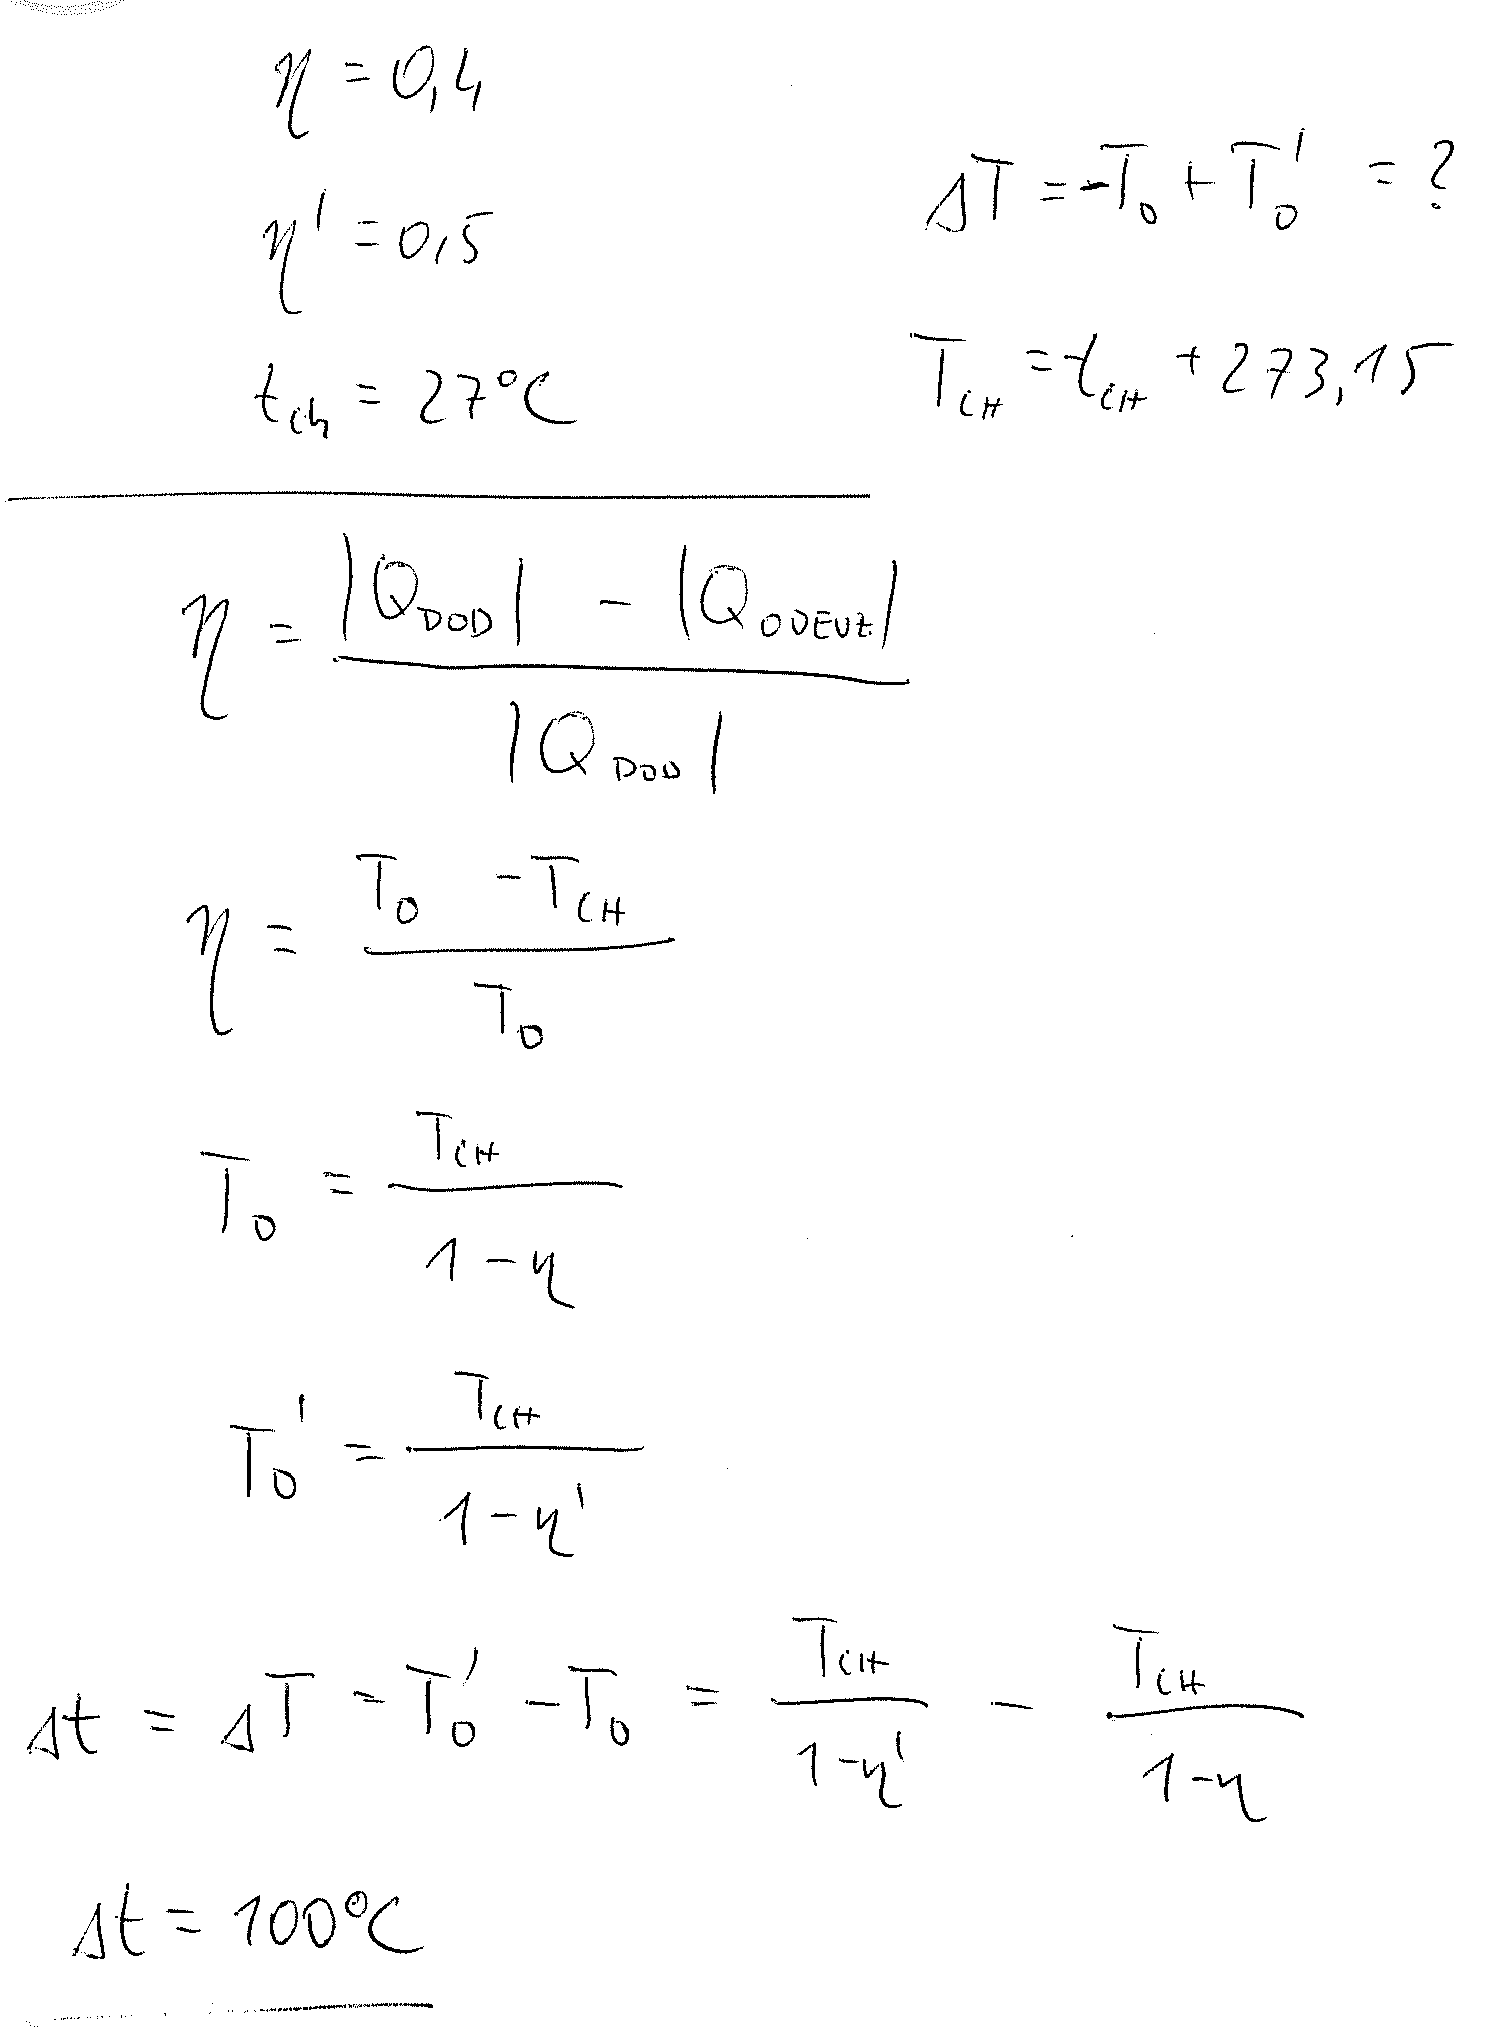 η = 0,4
η' = 0,5
t_ch = 27°C
ΔT = -T_0 + T_0' = ?
T_CH = t_CH + 273,15
η = (|Q_DOD| - |Q_ODEVZ|) / |Q_DOD|
η = (T_0 - T_CH) / T_0
T_0 = T_CH / (1-η)
T_0' = T_CH / (1-η')
Δt = ΔT = T_0' - T_0 = T_CH / (1-η') - T_CH / (1-η)
Δt = 100°C